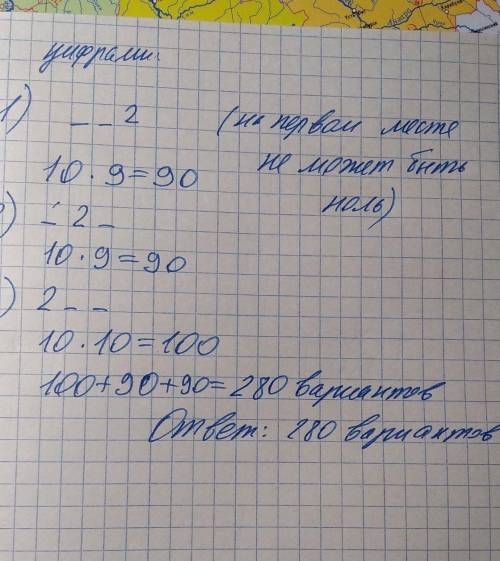 цифрами.
1) _ _ 2 (на первом месте
10 · 9 = 90 не может быть
ноль)
) _ 2 _
10 · 9 = 90
) 2 _ _
10 · 10 = 100
100 + 90 + 90 = 280 вариантов
Ответ: 280 вариантов